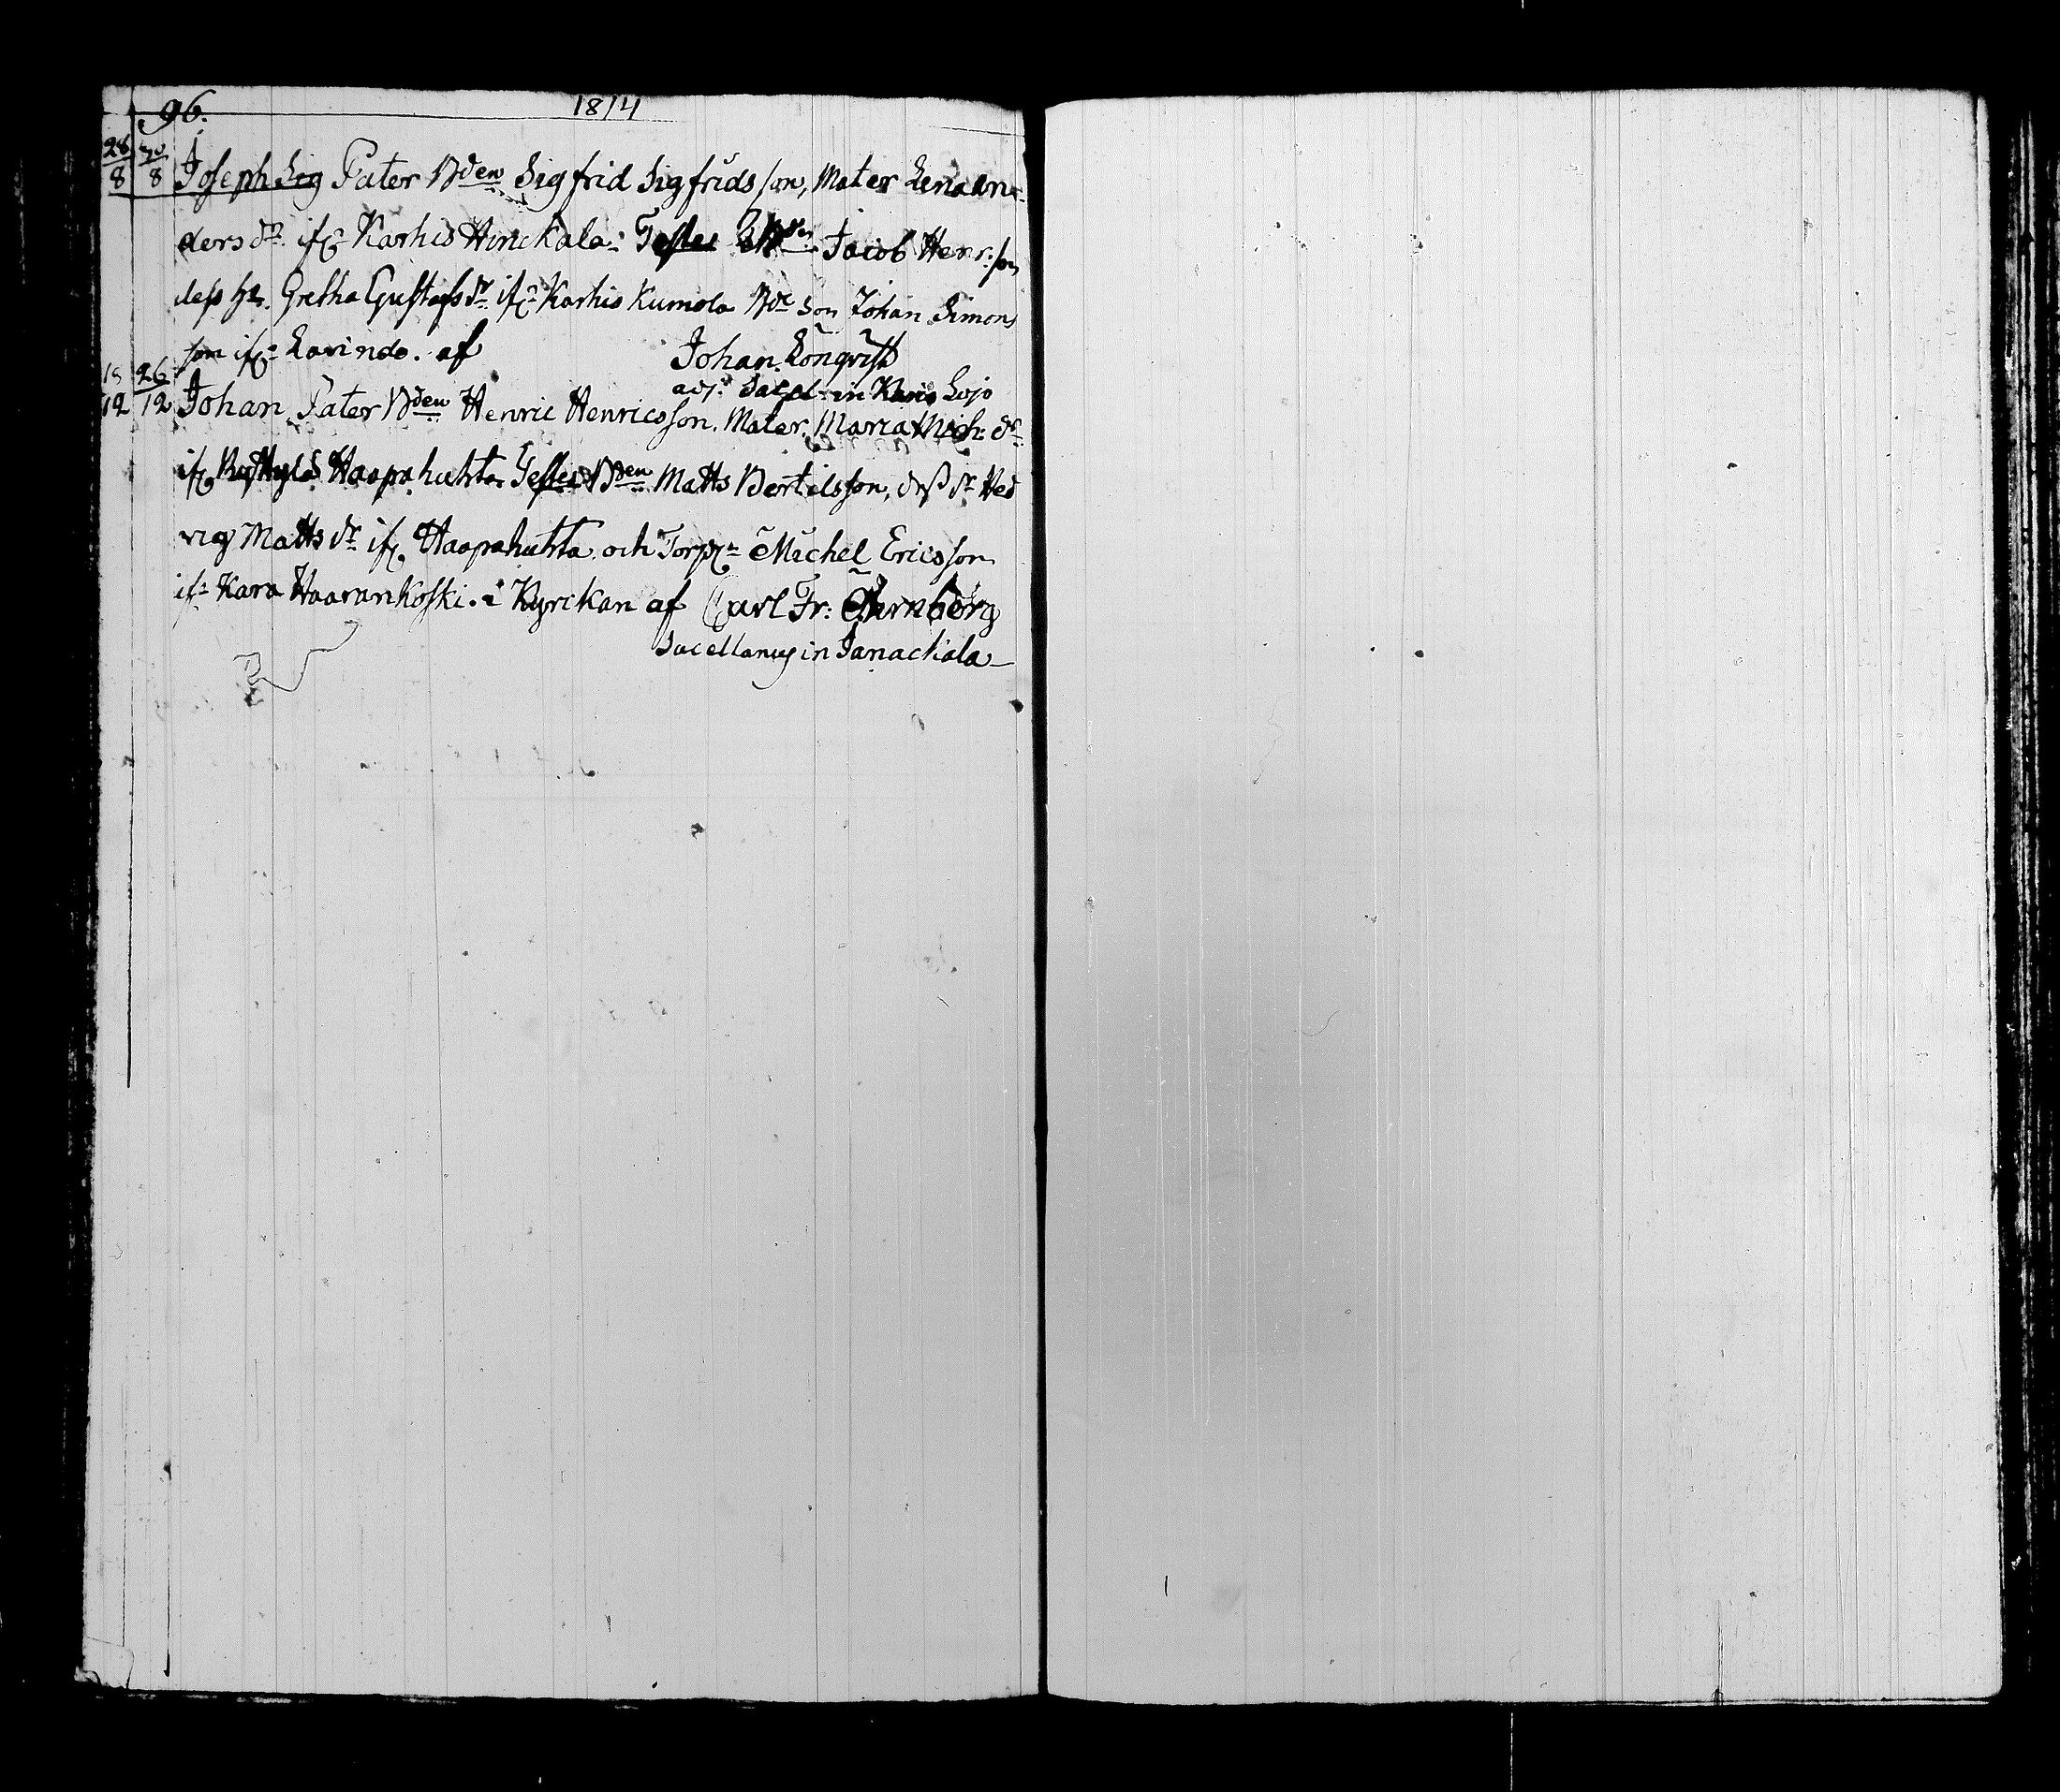 96. 1814
28/8 30/8 Joseph Sig Pater Bden Sigfrid Sigfridsson, Mater Lena An=
ders dr. ifr. Karhis Hinckala: Testes Bden Jacob Henr:son
dess h. Gretha Gustafsdr ifr Karhis Kumola Bde son Johan Simons
son ifr Lavindo. af Johan Lönqvist
adj: Sacel: in Karis Lojo
12 26/12 Johan Pater Bden Henric Henricsson. Mater. Maria Mich: dr
ifr Haapahuhta Testes Bden Matts Bertilsson, dess dr Hed
vig Matts dr ifr. Haapahuhta och Torp:n Michel Ericsson
ifr Kara Haarankoski. i Kyrckan af Carl Fr:
Sacellanus in Janackala